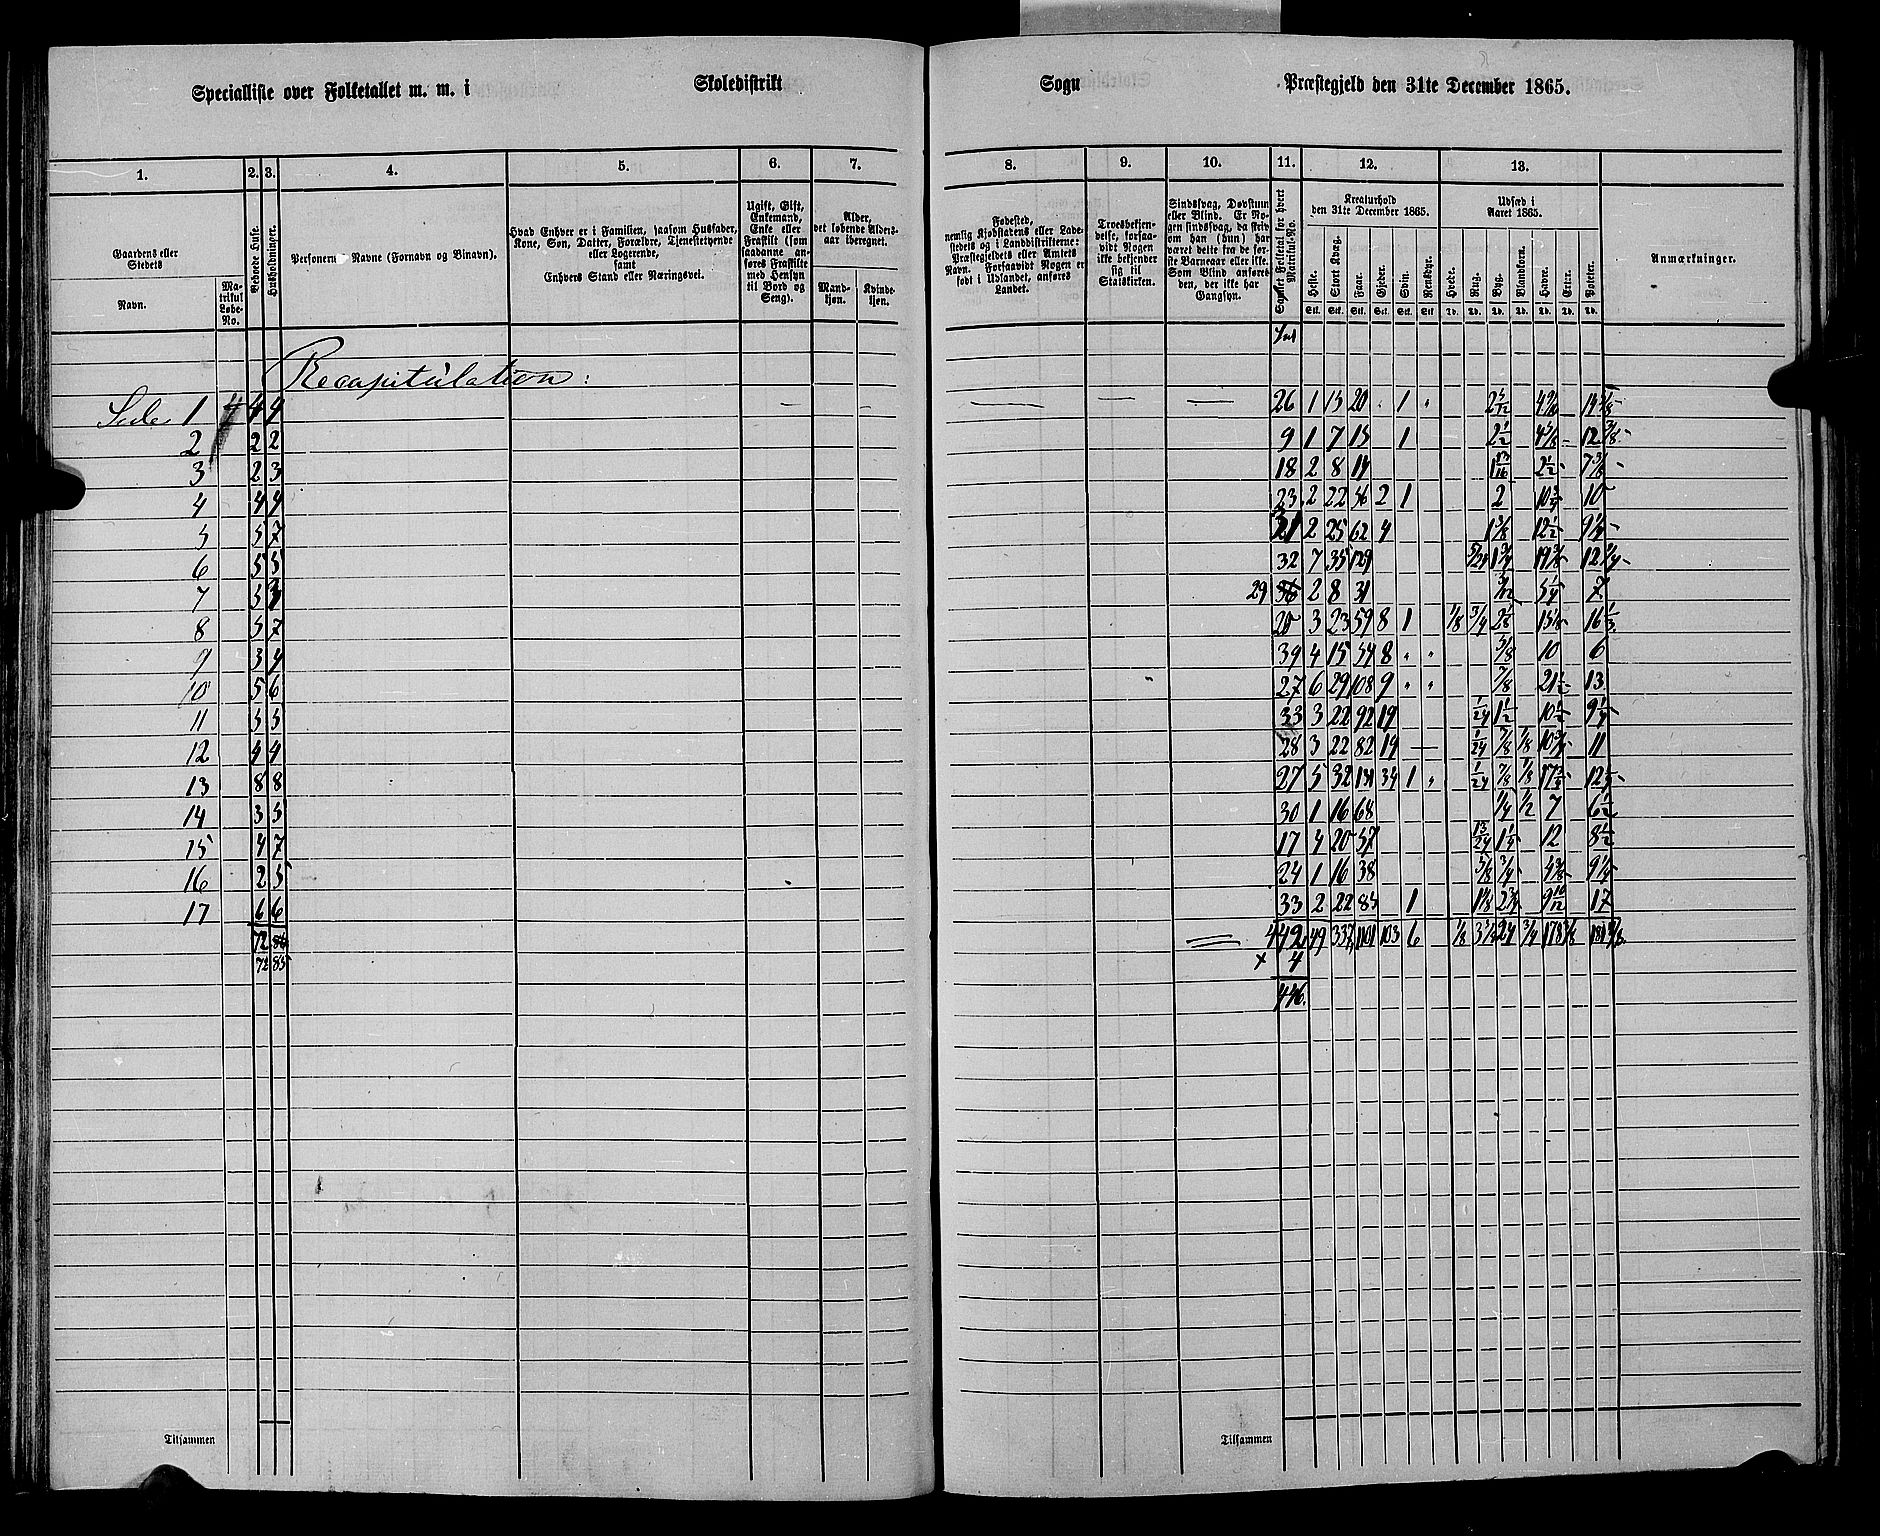 Specialliste over Folketallet m. m. i Skoledistrikt Sogn Præstegjeld den 31te December 1865.
1. 2. 3. 4. 5. 6. 7. 8. 9. 10. 11. 12. 13.
Gaardens eller Stedets
Navn.
Matrikul Løbe-No.
Beboede Huse.
Husholdninger.
Personernes Navne (Fornavn og Binavn).
Hvad Enhver er i Familien, saasom Husfader, Kone, Søn, Datter, Forældre, Tjenestetyende eller Logerende, samt Enhvers Stand eller Næringsvei.
Ugift, Gift, Enkemand, Enke eller Fraskilt (som saadanne anføres Fraskilte med Hensyn til Bord og Seng).
Alder, det løbende Alders-aar iberegnet.
Mand-kjøn. Kvinde-kjøn.
Fødested, nemlig Kjøbstadens eller Ladestedets og i Landdistrikterne: Præstegjeldets eller Amtets Navn. Forsaavidt Nogen er født i Udlandet, anføres Landet.
Troesbekjendelse, forsaavidt Nogen ikke bekjender sig til Statskirken.
Sindssvag, Døvstum eller Blind. Er Nogen sindssvag, da skriv om han (hun) har været dette fra de første Barneaar eller ikke. Som Blind anføres den, der ikke har Gangsyn.
Samlet Folketal for hvert Matrikul-No.
Kreaturhold den 31te December 1865.
Heste. Stort Kvæg. Faar. Gjeder. Svin. Rensdyr.
Stk. Stk. Stk. Stk. Stk. Stk
Udsæd i Aaret 1865.
Hvede. Rug. Byg. Blandkorn. Havre. Erter. Poteter.
Td. Td. Td. Td. Td. Td. Td.
Anmærkninger.
Recapitulation:
Side 1 4 4 4 26 1 15 20 1
2 2 2 9 1 7 15 1 2 1/2
3 2 3 18 2 8 14 1 13/16 2 1/2 7 3/8
4 4 4 23 2 22 56 2 1 2 10 3/4 10
5 5 7 2 25 62 4 1 5/8 12 1/2 9 1/4
6 5 5 32 7 35 129 5/24 1 3/4 19 3/8 12 3/4
7 5 29 36 2 8 31 5 1/4 7
8 5 7 20 3 23 59 8 1 1/8 3/4 2 1/8 15 1/8 16 1/3
9 3 4 39 4 15 54 8 " " 5/8 10 6
10 5 6 27 6 29 108 9 " " 7/8 21 1/2 13
11 5 5 33 3 22 92 19 1/24 1 1/2 10 1/2 9 1/4
12 4 4 28 3 22 82 19 — 1/24 7/8 1/8 10 3/4 11
13 8 8 27 5 32 131 34 1 " 1/24 7/8 1/8
14 3 5 30 1 16 68 1/4 1/2 7 6 1/2
15 4 7 17 4 20 57 13/24 1 1/4 12 8 1/2
16 2 5 24 1 16 38 5/8 3/4 9 1/4
17 6 6 33 2 22 85 1 1 1/8 2 3/4 9 10/12 17
72 86 442 49 337 1101 103 6 1/8 24 3/4
72 85 + 4
446.
Tilsammen Tilsammen